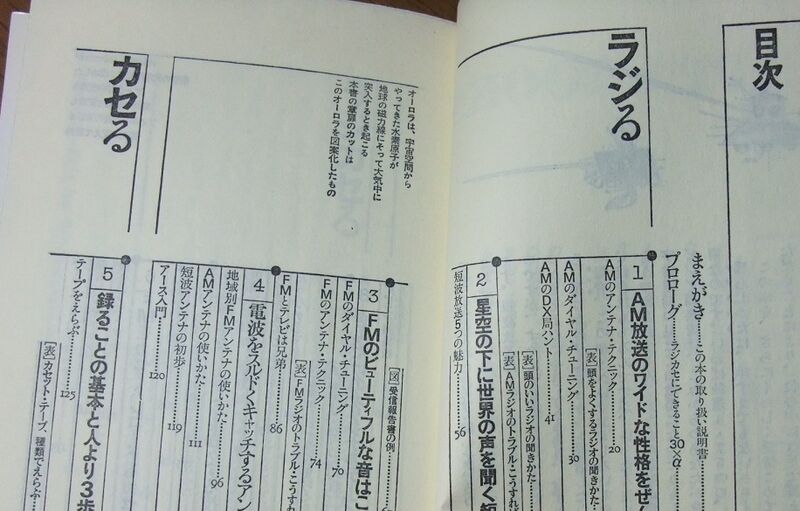 目次
まえがき………この本の取り扱い説明書
プロローグ………ラジカセにできること30×α
ラジる
1 AM放送のワイドな性格をぜん
AMのアンテナ・テクニック………20
[表]頭をよくするラジオの聞きかた
AMのダイヤル・チューニング………30
AMのDX局ハント………41
[表]頭のいいラジオの聞きかた
[表]AMラジオのトラブル・こうすれば
2 星空の下に世界の声を聞く短
短波放送5つの魅力………56
オーロラは、宇宙空間から
やってきた水素原子が
地球の磁力線にそって大気中に
突入するとき起こる
本書の章扉のカットは
このオーロラを図案化したもの
[図]受信報告書の例
3 FMのビューティフルな音はこ
FMのダイヤル・チューニング………70
FMのアンテナ・テクニック………74
[表]FMラジオのトラブル・こうすれ
FMとテレビは兄弟………86
4 電波をスルドくキャッチするアン
地域別FMアンテナの使いかた………96
AMアンテナの使いかた………111
短波アンテナの初歩………119
アース入門………120
カセる
5 録ることの基本と人より3歩
テープをえらぶ………125
[表]カセット・テープ、種類でえらぶ